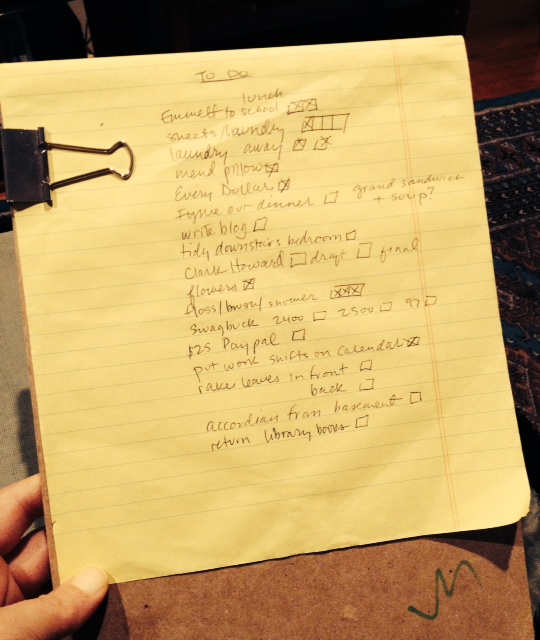 TO DO
lunch
Emmett to school
sheets/laundry
laundry away
mend pillow
Every Dollar
Figure out dinner grand sandwich
+ soup?
write blog
tidy downstairs bedroom
Clark Howard draft final
flowers
floss/brush/shower
swagbuck 2400 2500 97
$25 Paypal
put work shifts on calendar
rake leaves in front
back
accordian from basement
return library books
M